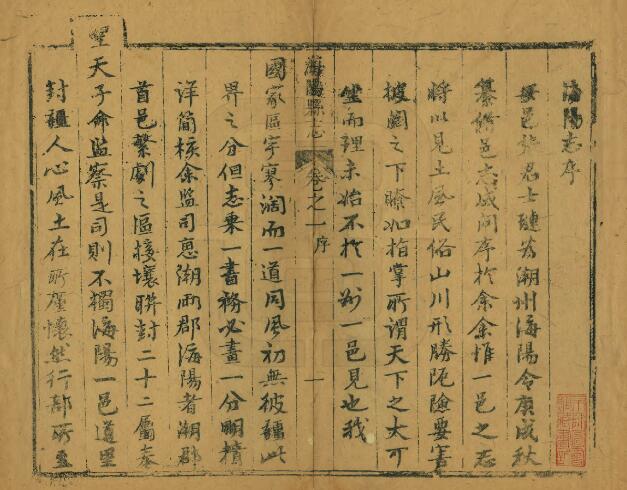 海陽志序
毋邑施君士璉為潮州海陽令庚戌秋
纂修邑志成問序於余余惟一邑之志
將以見土風民俗山川形勝阨險要害
披圖之下瞭如指掌所謂天下之大可
坐而理未始不於一州一邑見也我
海陽縣志 卷之一 序 一
國家區宇寥濶而一道同風初無彼疆此
界之分但志乘一書務必畫一分明積
詳簡核余監司惠潮兩郡海陽者潮郡
首邑繫劇之區接壤聯封二十二屬奉
聖天子命監察是司則不獨海陽一邑道里
封疆人心風土在所廑懷然行部所至